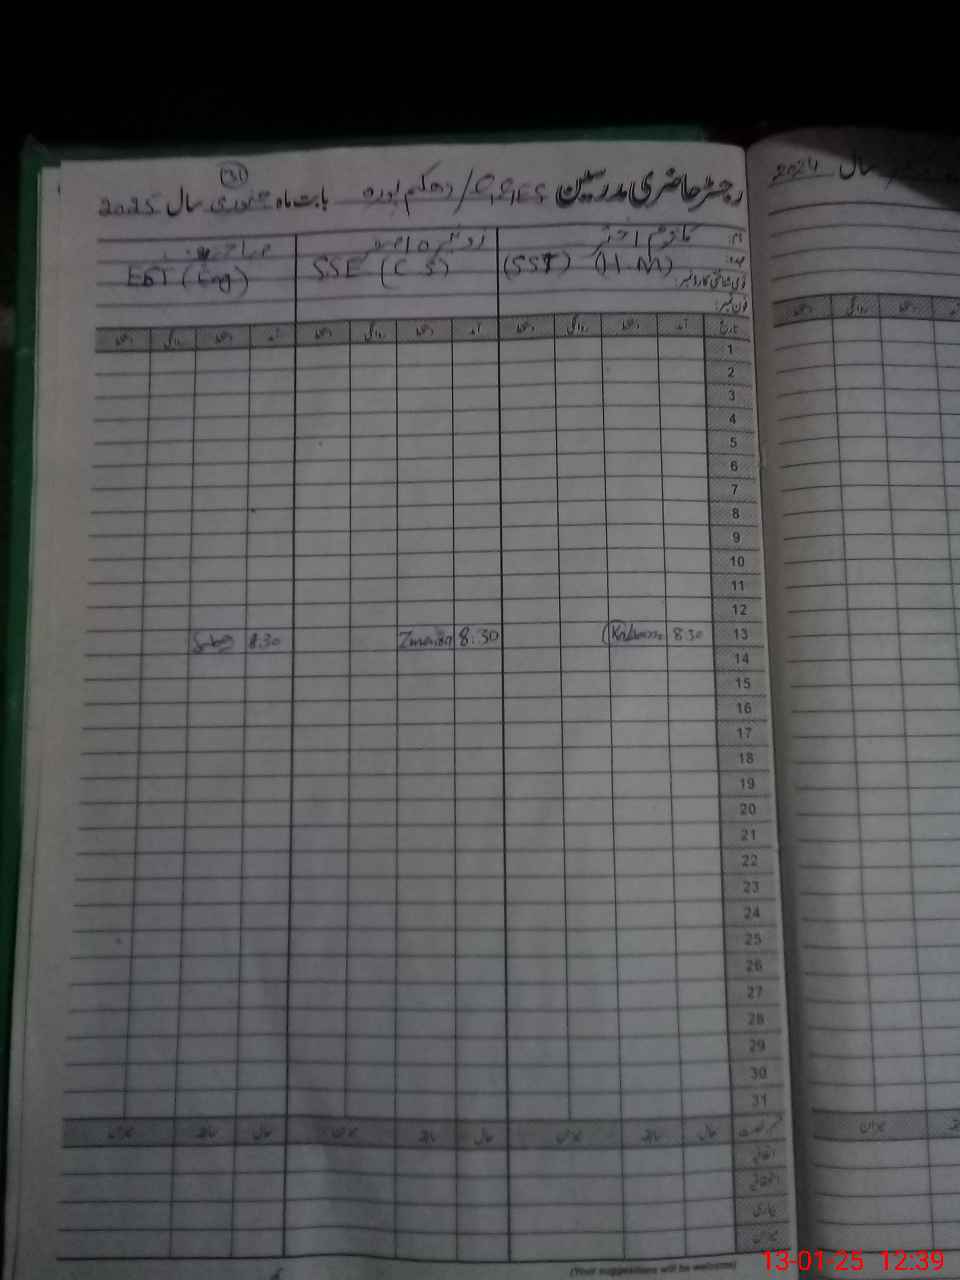 31
رجسٹر حاضری مدرسین GGES / دھکم پورہ بابت ماہ جنوری سال 2025
سال 2024
نام:
عہدہ: (SST) (H.M) SSE (CS) EST (Eng)
قومی شناختی کارڈ نمبر:
فون نمبر:
تاریخ آمد دستخط روانگی دستخط آمد دستخط روانگی دستخط آمد دستخط روانگی دستخط
1
2
3
4
5
6
7
8
9
10
11
12
13 8.30 8:30 8.30
14
15
16
17
18
19
20
21
22
23
24
25
26
27
28
29
30
31
حال سابقہ میزان حال سابقہ میزان حال سابقہ میزان
اتفاقیہ
استحقاقیہ
بیماری
میزان
(Your suggestions will be welcome)
13-01-25 12:39